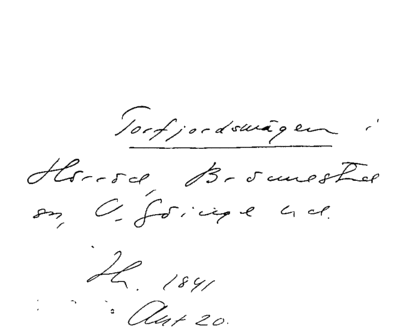 Torfjordsvägen i
Hörröd, Brönnestad
sn, V. Göinge hd.
Th. 1841
Akt 20.